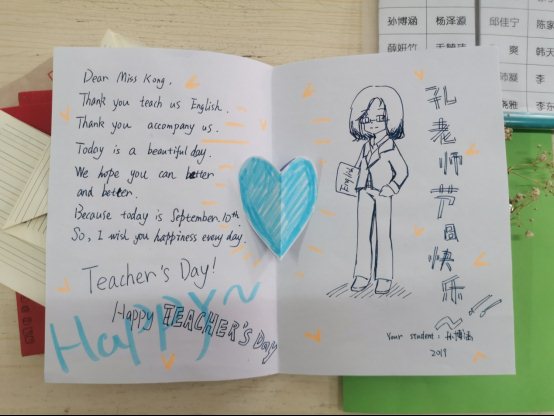 Dear Miss Kong,
Thank you teach us English.
Thank you accompany us.
Today is a beautiful day.
We hope you can better
and better.
Because today is September 10th.
So, I wish you happiness every day.
Teacher's Day!
Happy~
Happy TEACHER'S Day
English
孔老师节日快乐
Your student: 孙博涵
2019
孙博涵 杨泽源 邱佳宁 陈家
爽
李